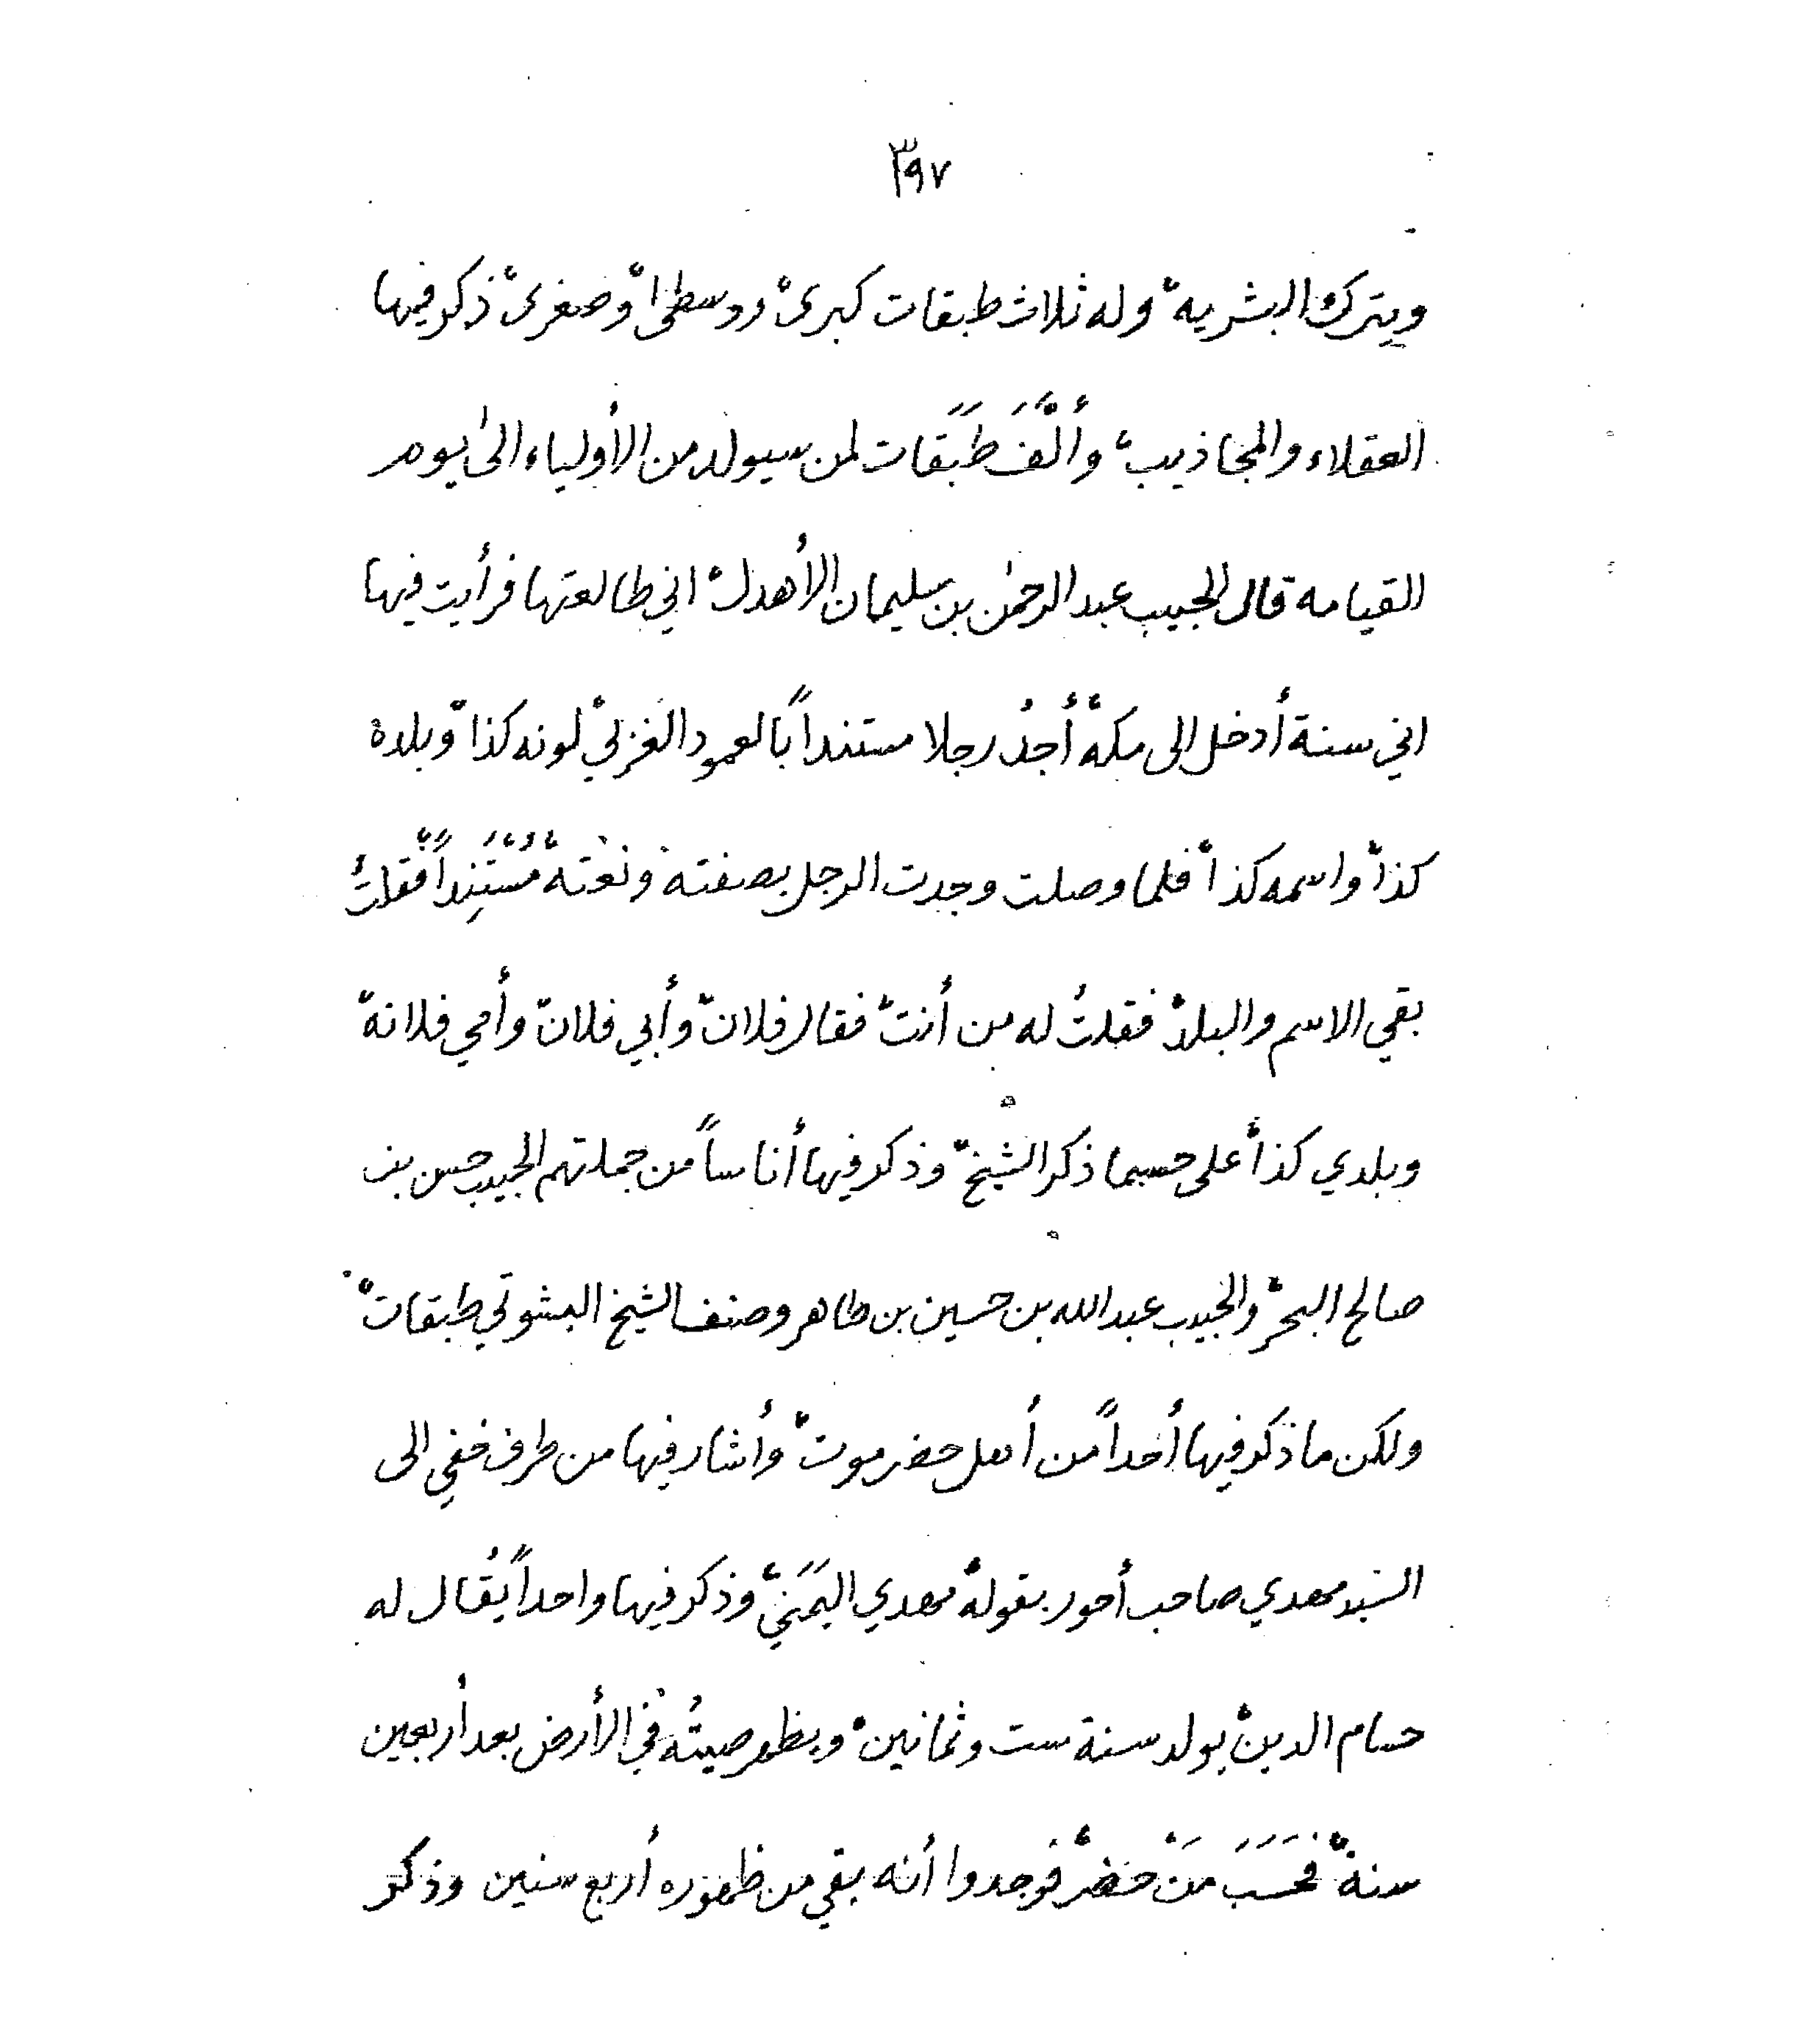 ٣٩٧
ويترك البشريه، وله ثلاث طبقات كبرى، ووسطى، وصغرى، ذكر فيها
العقلاء والمجاذيب، وألَّفَ طَبَقات لمن سيولد من الأولياء الى يوم
القيامه قال الحبيب عبد الرحمن بن سليمان الأهدل، اني طالعتها فرأيت فيها
اني سنة أدخل الى مكه، أجدُ رجلا مستنداً بالعمود الغربي، لونه كذا، وبلده
كذا، واسمه كذا، فلما وصلت وجدت الرجل بصفته ونعْته، مُسْتَنِداً، فقلتُ
بقي الاسم والبلد، فقلتُ له من أنت، فقال فلان، وأبي فلان، وأمي فلانه،
وبلدي كذا، على حسبما ذكر الشيخ، وذكر فيها أناساً من جملتهم الحبيب حسن بن
صالح البحر، والحبيب عبدالله بن حسين بن طاهر وصنف الشيخ طبقات،
ولكن ما ذكر فيها أحداً من أهل حضرموت، وأشار فيها من طرف خفي الى
السيد مهدي صاحب أحور بقوله، مهدي اليَمَني، وذكر فيها واحداً يُقال له
حسام الدين، يولد سنة ست وثمانين، ويظهر صيتُه في الأرض بعد أربعين
سنة، فحَسَبَ مَنْ حضر، فوجدوا أنه بقي من ظهوره أربع سنين وذكر